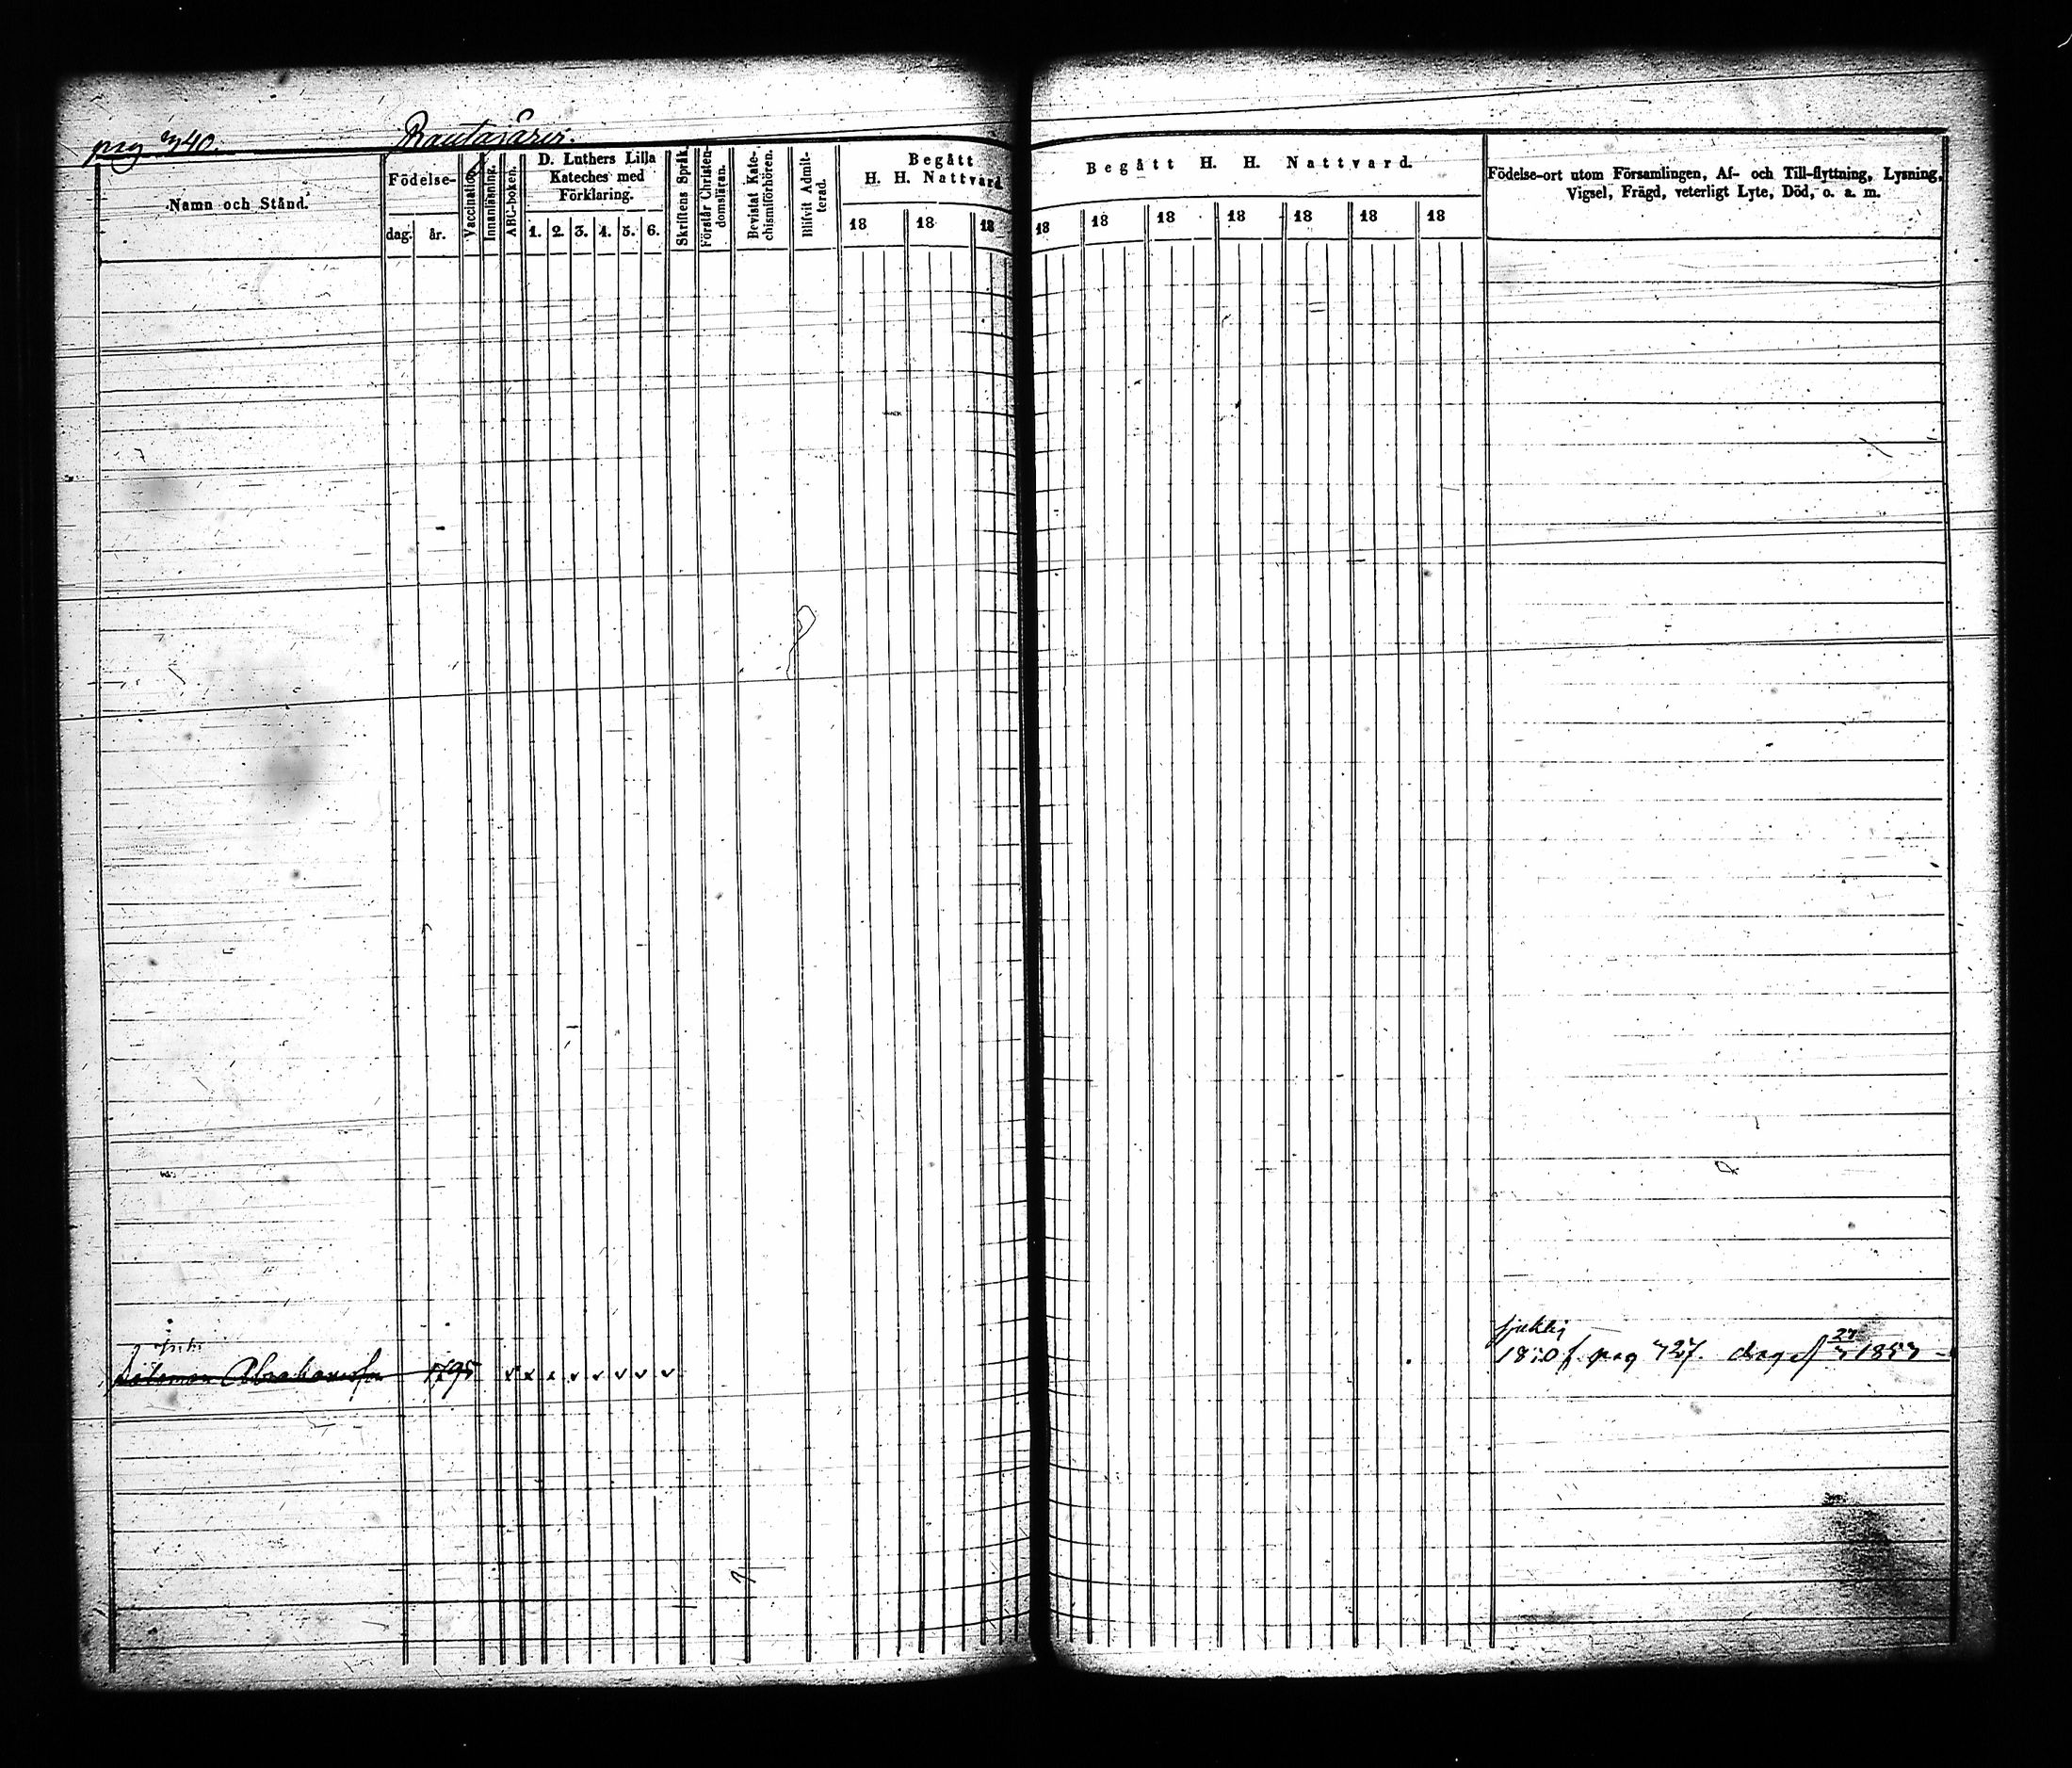 pag 740. Rautajärvi.
Namn och Stånd.
Födelse-
dag. år.
Vaccination.
Innanläsning.
ABC-boken.
D. Luthers Lilla
Kateches med
Förklaring.
1. 2. 3. 4. 5. 6.
Skriftens Språk.
Förstår Christen-
domsläran.
Bevistat Kate-
chismiförhören.
Blifvit Admit-
terad.
Begått
H. H. Nattvard.
18 18 18
Begått H. H. Nattvard.
18 18 18 18 18 18 18
Födelse-ort utom Församlingen, Af- och Till-flyttning, Lysning,
Vigsel, Frägd, veterligt Lyte, Död, o. a. m.
sjuklig
Salomon Abrahamsson 1795 v x x v v v v v 1850 f. pag 727.